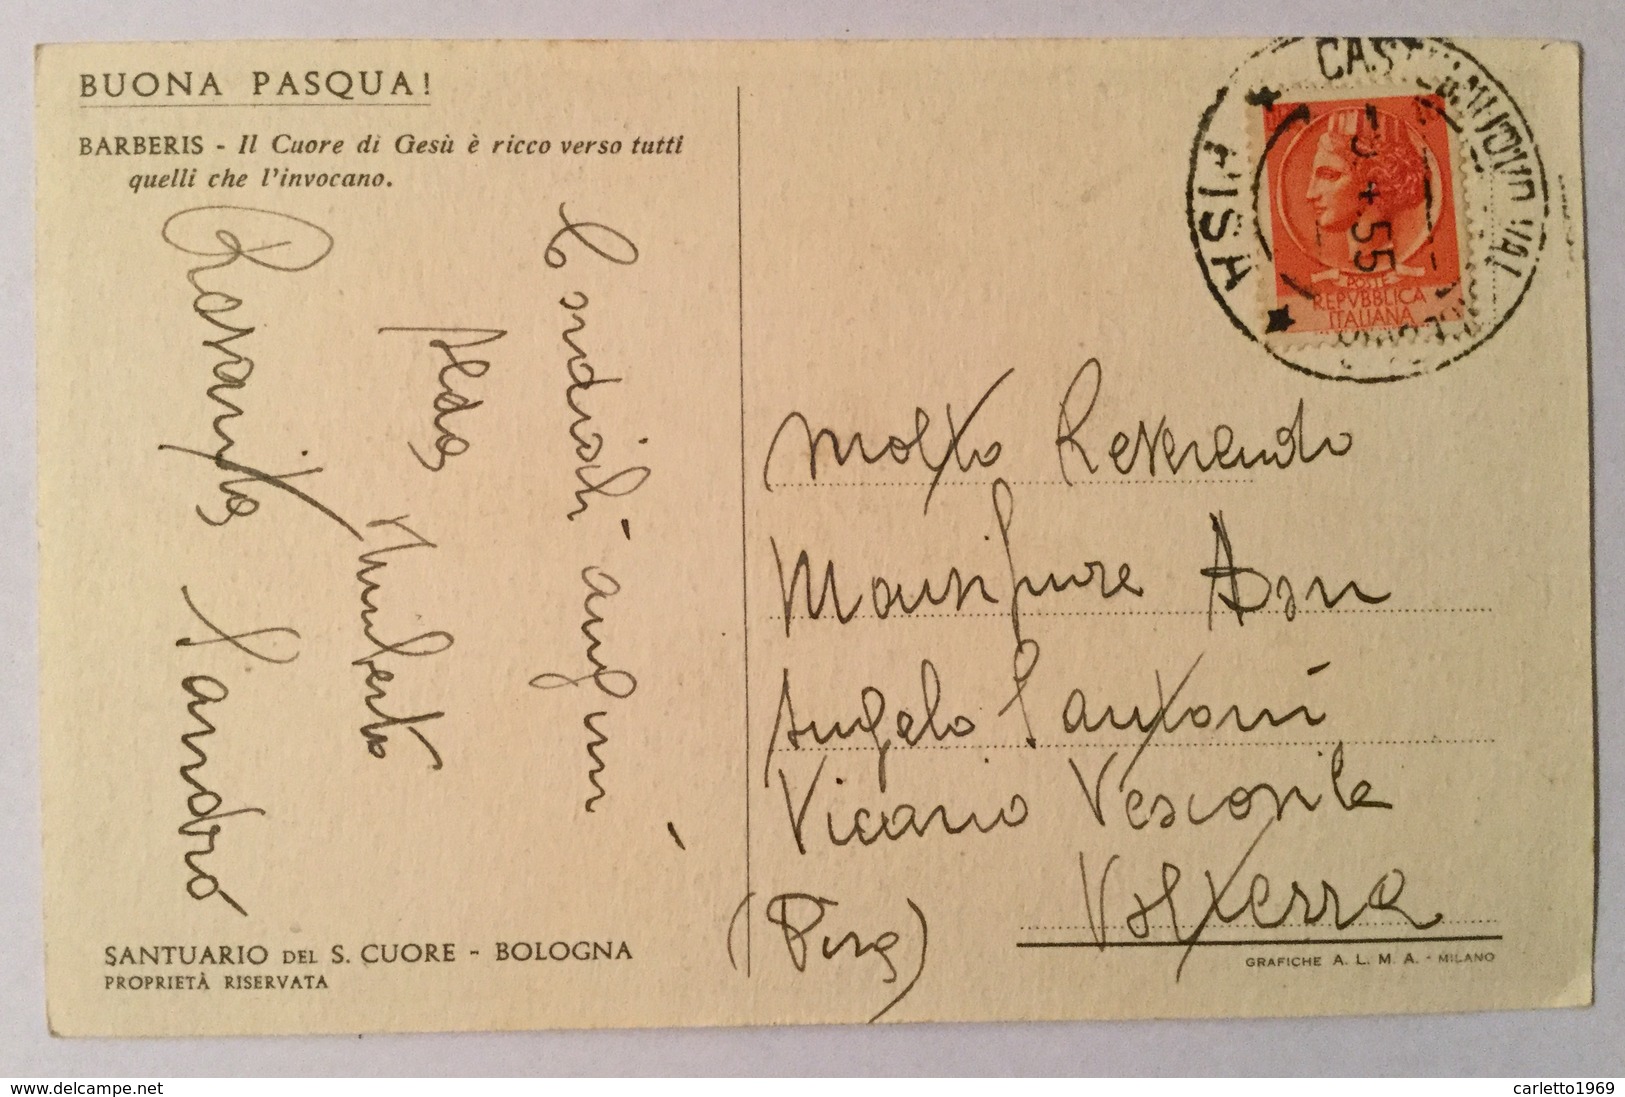 BUONA PASQUA!
BARBERIS - Il Cuore di Gesù è ricco verso tutti
quelli che l'invocano.
Cordiali auguri
Alda
Umberto
Rosanita Sandro
SANTUARIO DEL S. CUORE - BOLOGNA
PROPRIETÀ RISERVATA
PISA
4.55
POSTE
REPVBBLICA
ITALIANA
Molto Reverendo
Monsignore Don
Angelo Santoni
Vicario Vescovile
Volterra
(Pisa)
GRAFICHE A. L. M. A. - MILANO
www.delcampe.net
carletto1969